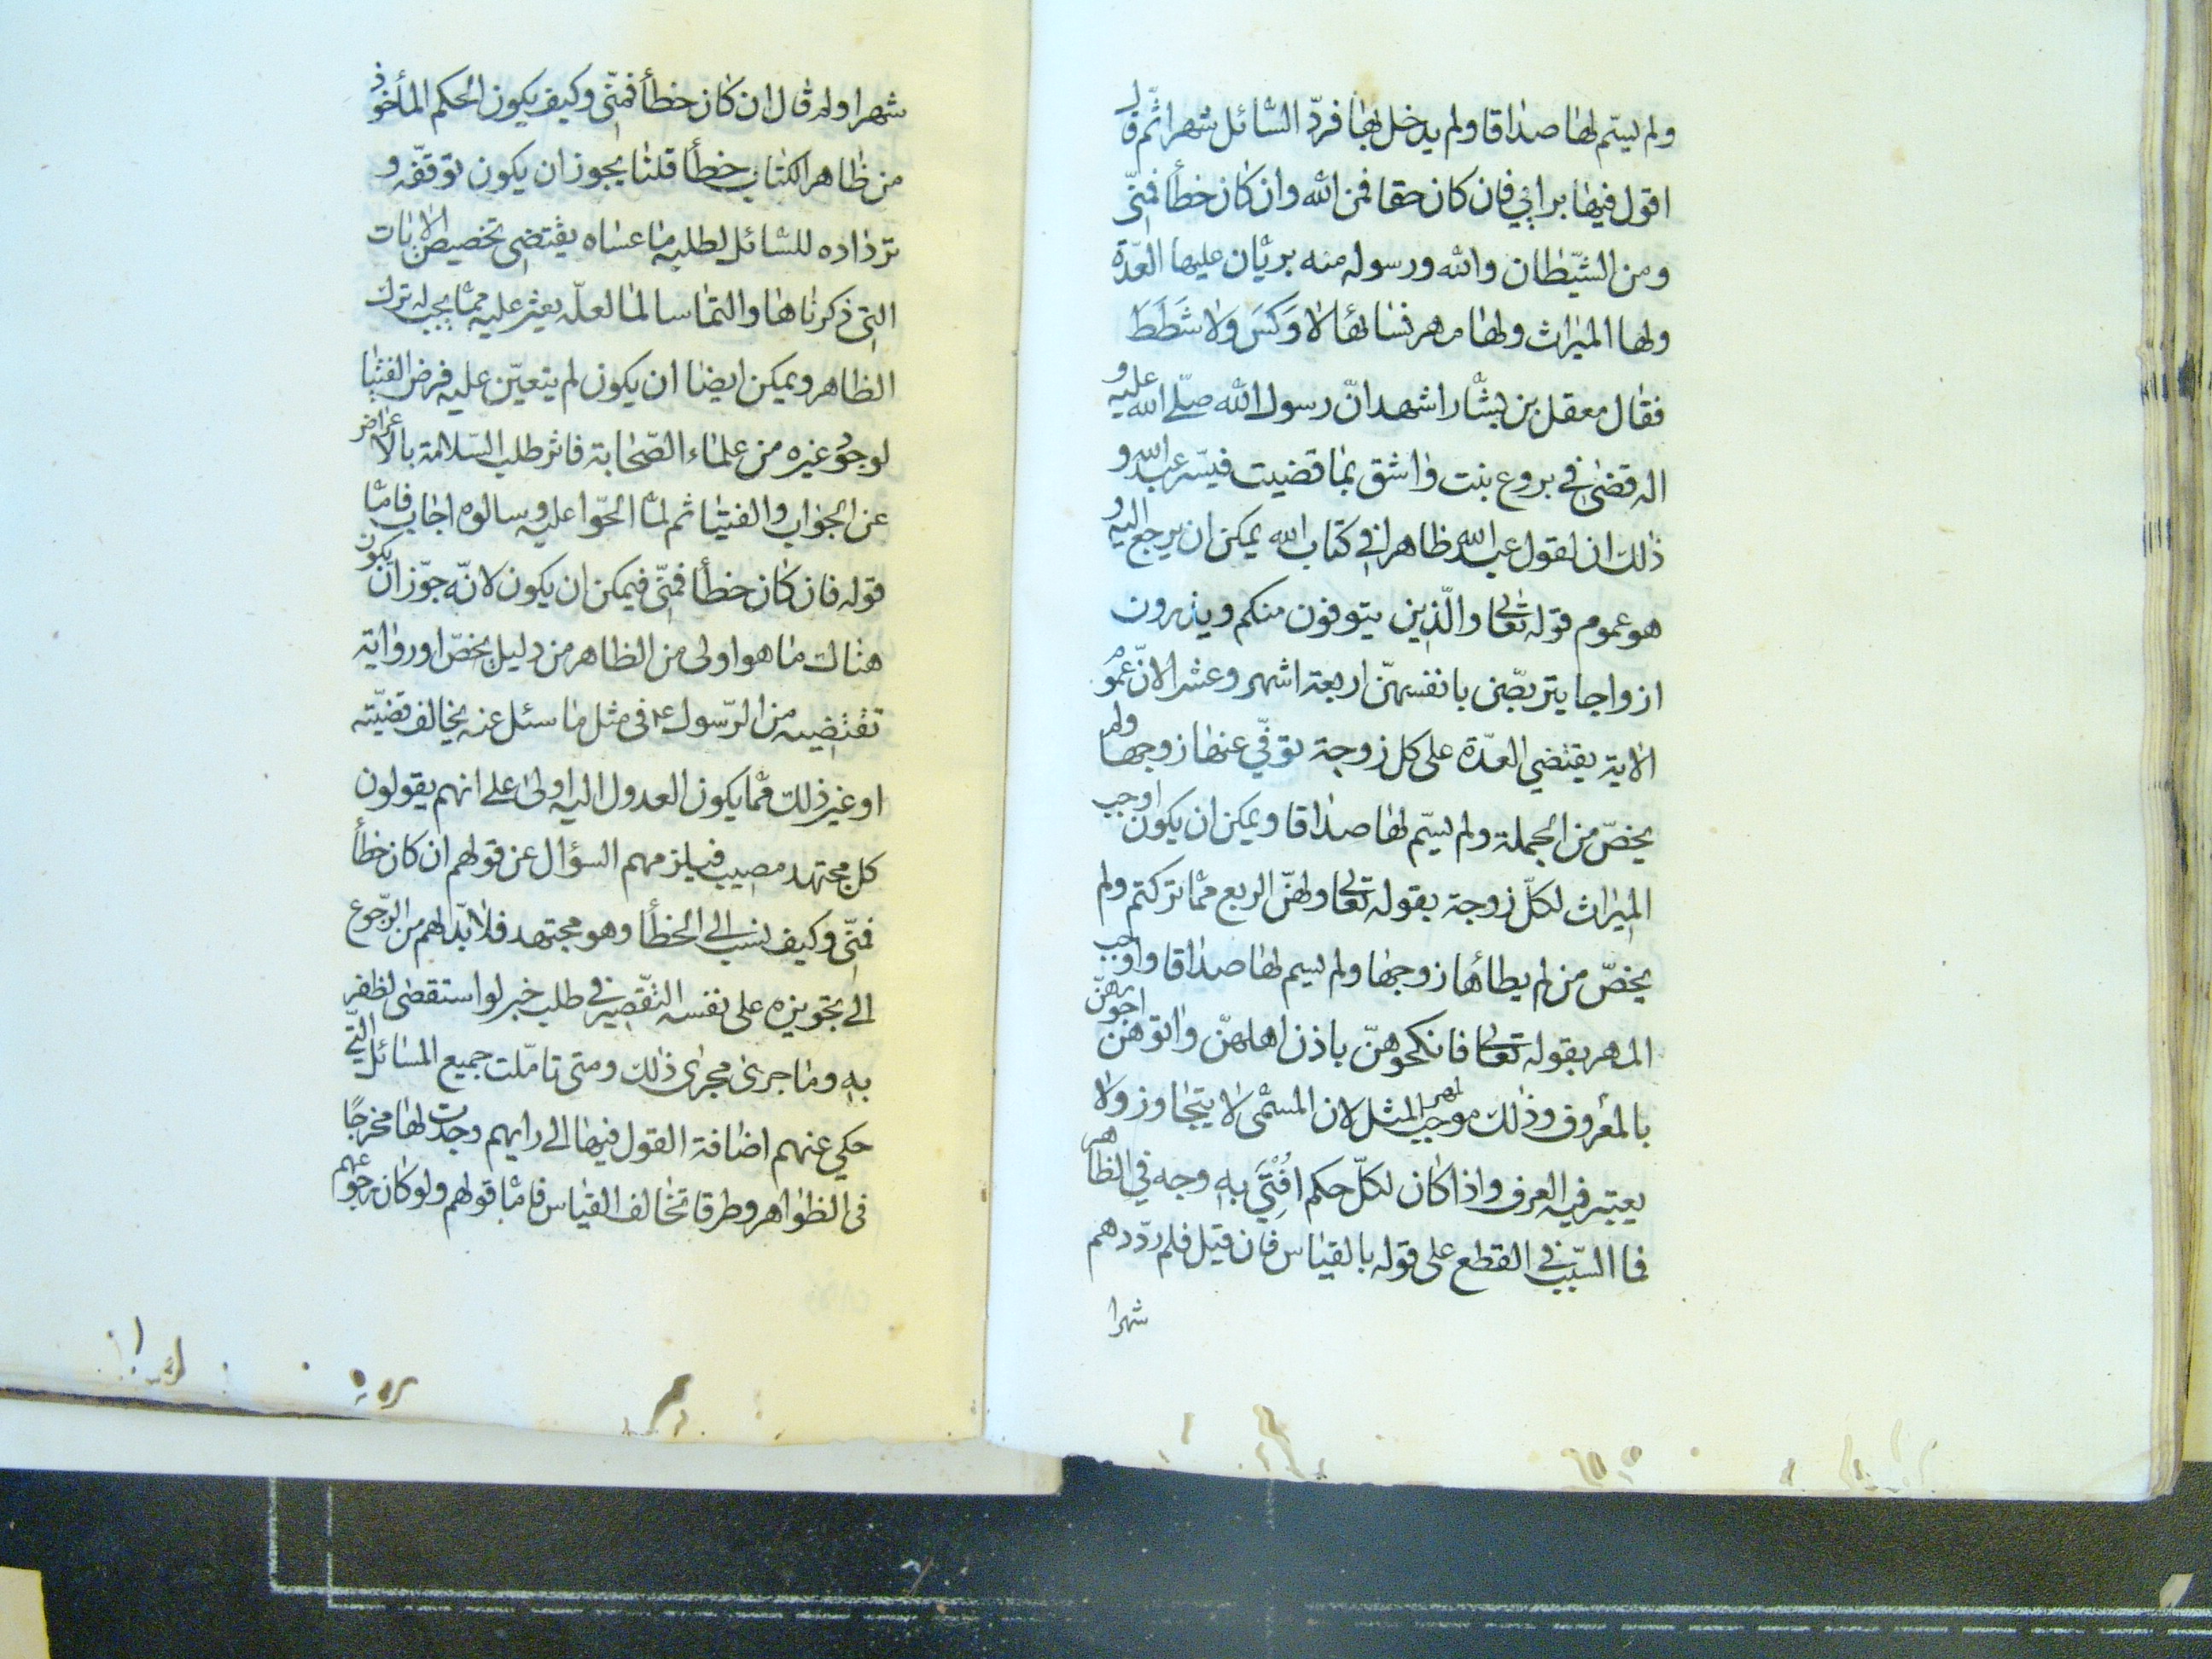 ولم يسمّ لها صداقا ولم يدخل بها فردّ السّائل شهرا ثمّ قال
اقول فيها برايي فان كان حقا فمن الله وان كان خطأ فمنّي
ومن الشّيطان والله ورسوله منه بريّان عليها العدّة
ولها الميراث ولها مهر نسائها لا وَكَسَ ولا شَطَطَ
فقال معقل بن يسّار اشهد انّ رسول الله صلّى الله عليه و
اله قضى في بروع بنت واشق بما قضيت فيسّر عبد الله و
ذلك ان لقول عبد الله ظاهرا في كتاب الله يمكن ان يرجع اليه و
هو عموم قوله تعالى والّذين يتوفون منكم ويذرون
ازواجا يتربّصن بانفسهنّ اربعة اشهر وعشرا لانّ عموم
الاية يقتضي العدّة على كل زوجة توفّي عنها زوجها ولم
يخصّ من الجملة ولم يسّم لها صداقا ويمكن ان يكون اوجب
الميراث لكلّ زوجة بقوله تعالى ولهنّ الربع ممّا تركتم ولم
يخصّ من لم يطأها زوجها ولم يسم لها صداقا واوجب
المهر بقوله تعالى فانكحوهنّ باذن اهلهنّ واتوهنّ اجورهنّ
بالمعروف وذلك موجب لمهر المثل لان المسمّى لا يتجاوز ولا
يعتبر فيه العرف واذا كان لكلّ حكم اُفْتِيَ به وجه في الظاهر
فما السّبب في القطع على قوله بالقياس فان قيل فلم ردّدهم
شهرا
شهرا ولم قال ان كان خطأ فمنّي وكيف يكون الحكم المأخوذ
من ظاهر الكتاب خطأ قلنا يجوز ان يكون توقفّه و
ترداده للسّائل لطلبه ما عساه يقتضي تخصيص الايات
التي ذكرناها والتماسا لما لعلّه يعثر عليه ممّا يجب له ترك
الظاهر ويمكن ايضا ان يكون لم يتعيّن عليه فرض الفتيا
لوجود غيره من علماء الصّحابة فاثر طلب السّلامة بالاعراض
عن الجواب والفتيا ثم لمّا الحّوا عليه وسالوه اجاب فامّا
قوله فان كان خطأ فمنّي فيمكن ان يكون لانّه جوّز ان يكون
هناك ما هو اولى من الظاهر من دليل يخصّ او رواية
تقتضيه من الرّسول ع في مثل ما سئل عنه يخالف قضيّته
او غير ذلك ممّا يكون العدول اليه اولى على انهم يقولون
كل مجتهد مصيب فيلزمهم السؤال عن قولهم ان كان خطأ
فمنّي وكيف نسب الى الخطأ وهو مجتهد فلا بدّ لهم من الرّجوع
الى تجويزه على نفسه التّقصير في طلب خبر لو استقصى لظفر
به وما جرى مجرى ذلك ومتى تامّلت جميع المسائل الّتي
حكي عنهم اضافة القول فيها الى رايهم وجدت لها مخرجًا
في الظواهر وطرقا تخالف القياس فامّا قولهم ولو كان رجوعهم